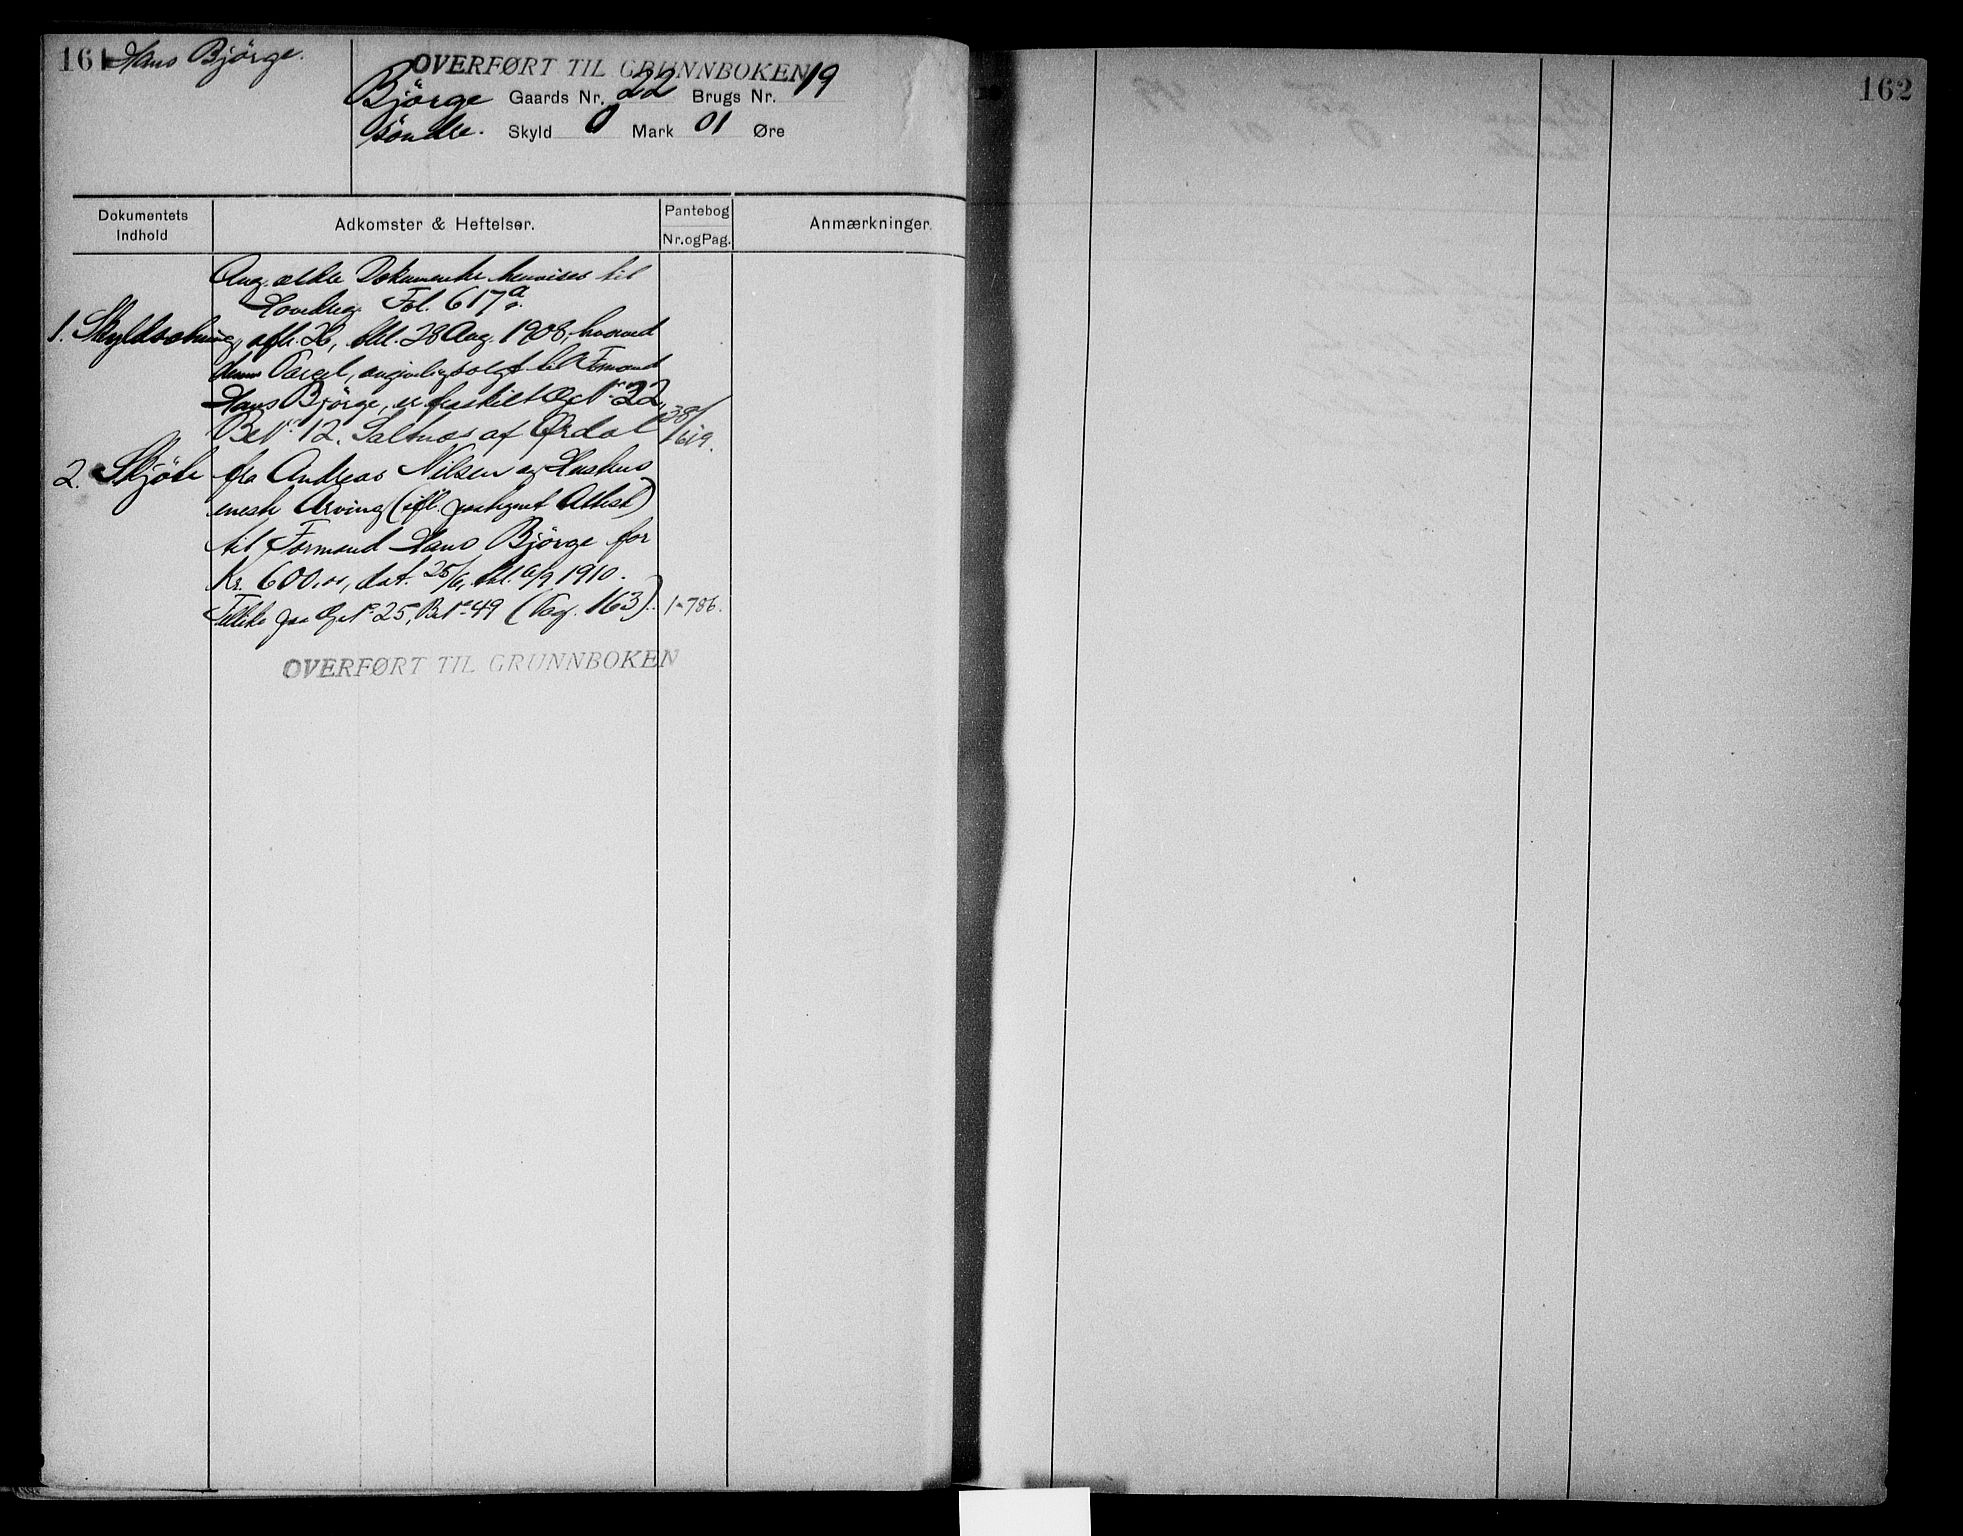 161 Hans Bjørge.
OVERFØRT TIL GRUNNBOKEN
Bjørge Gaards Nr. 22 Brugs Nr. 19
søndre. Skyld 0 Mark 01 Øre
162
Dokumentets Indhold
Adkomster & Heftelser.
Pantebog
Nr. og Pag.
Anmærkninger.
Ang. ældre Dokumenter henvises til
Hovedreg. Fol. 617a.
1. Skyldsætning, afh. 26, thl. 28 Aug. 1908, hvorved
denne Parcel, angivelig solgt til Formand
Hans Bjørge, er fraskilt Gr No 22,
Br No 12. Salmos af Ørdal 38/619.
2. Skjøte fra Andreas Nilsen og Hustrus
eneste Arving (ifl. paategnet Attest)
til Formand Hans Bjørge for
Kr. 600.00, dat. 25/6, thl. 6/9 1910.
Tillike paa Gr No 25, Br No 49 (Pag. 163). 1-786.
OVERFØRT TIL GRUNNBOKEN